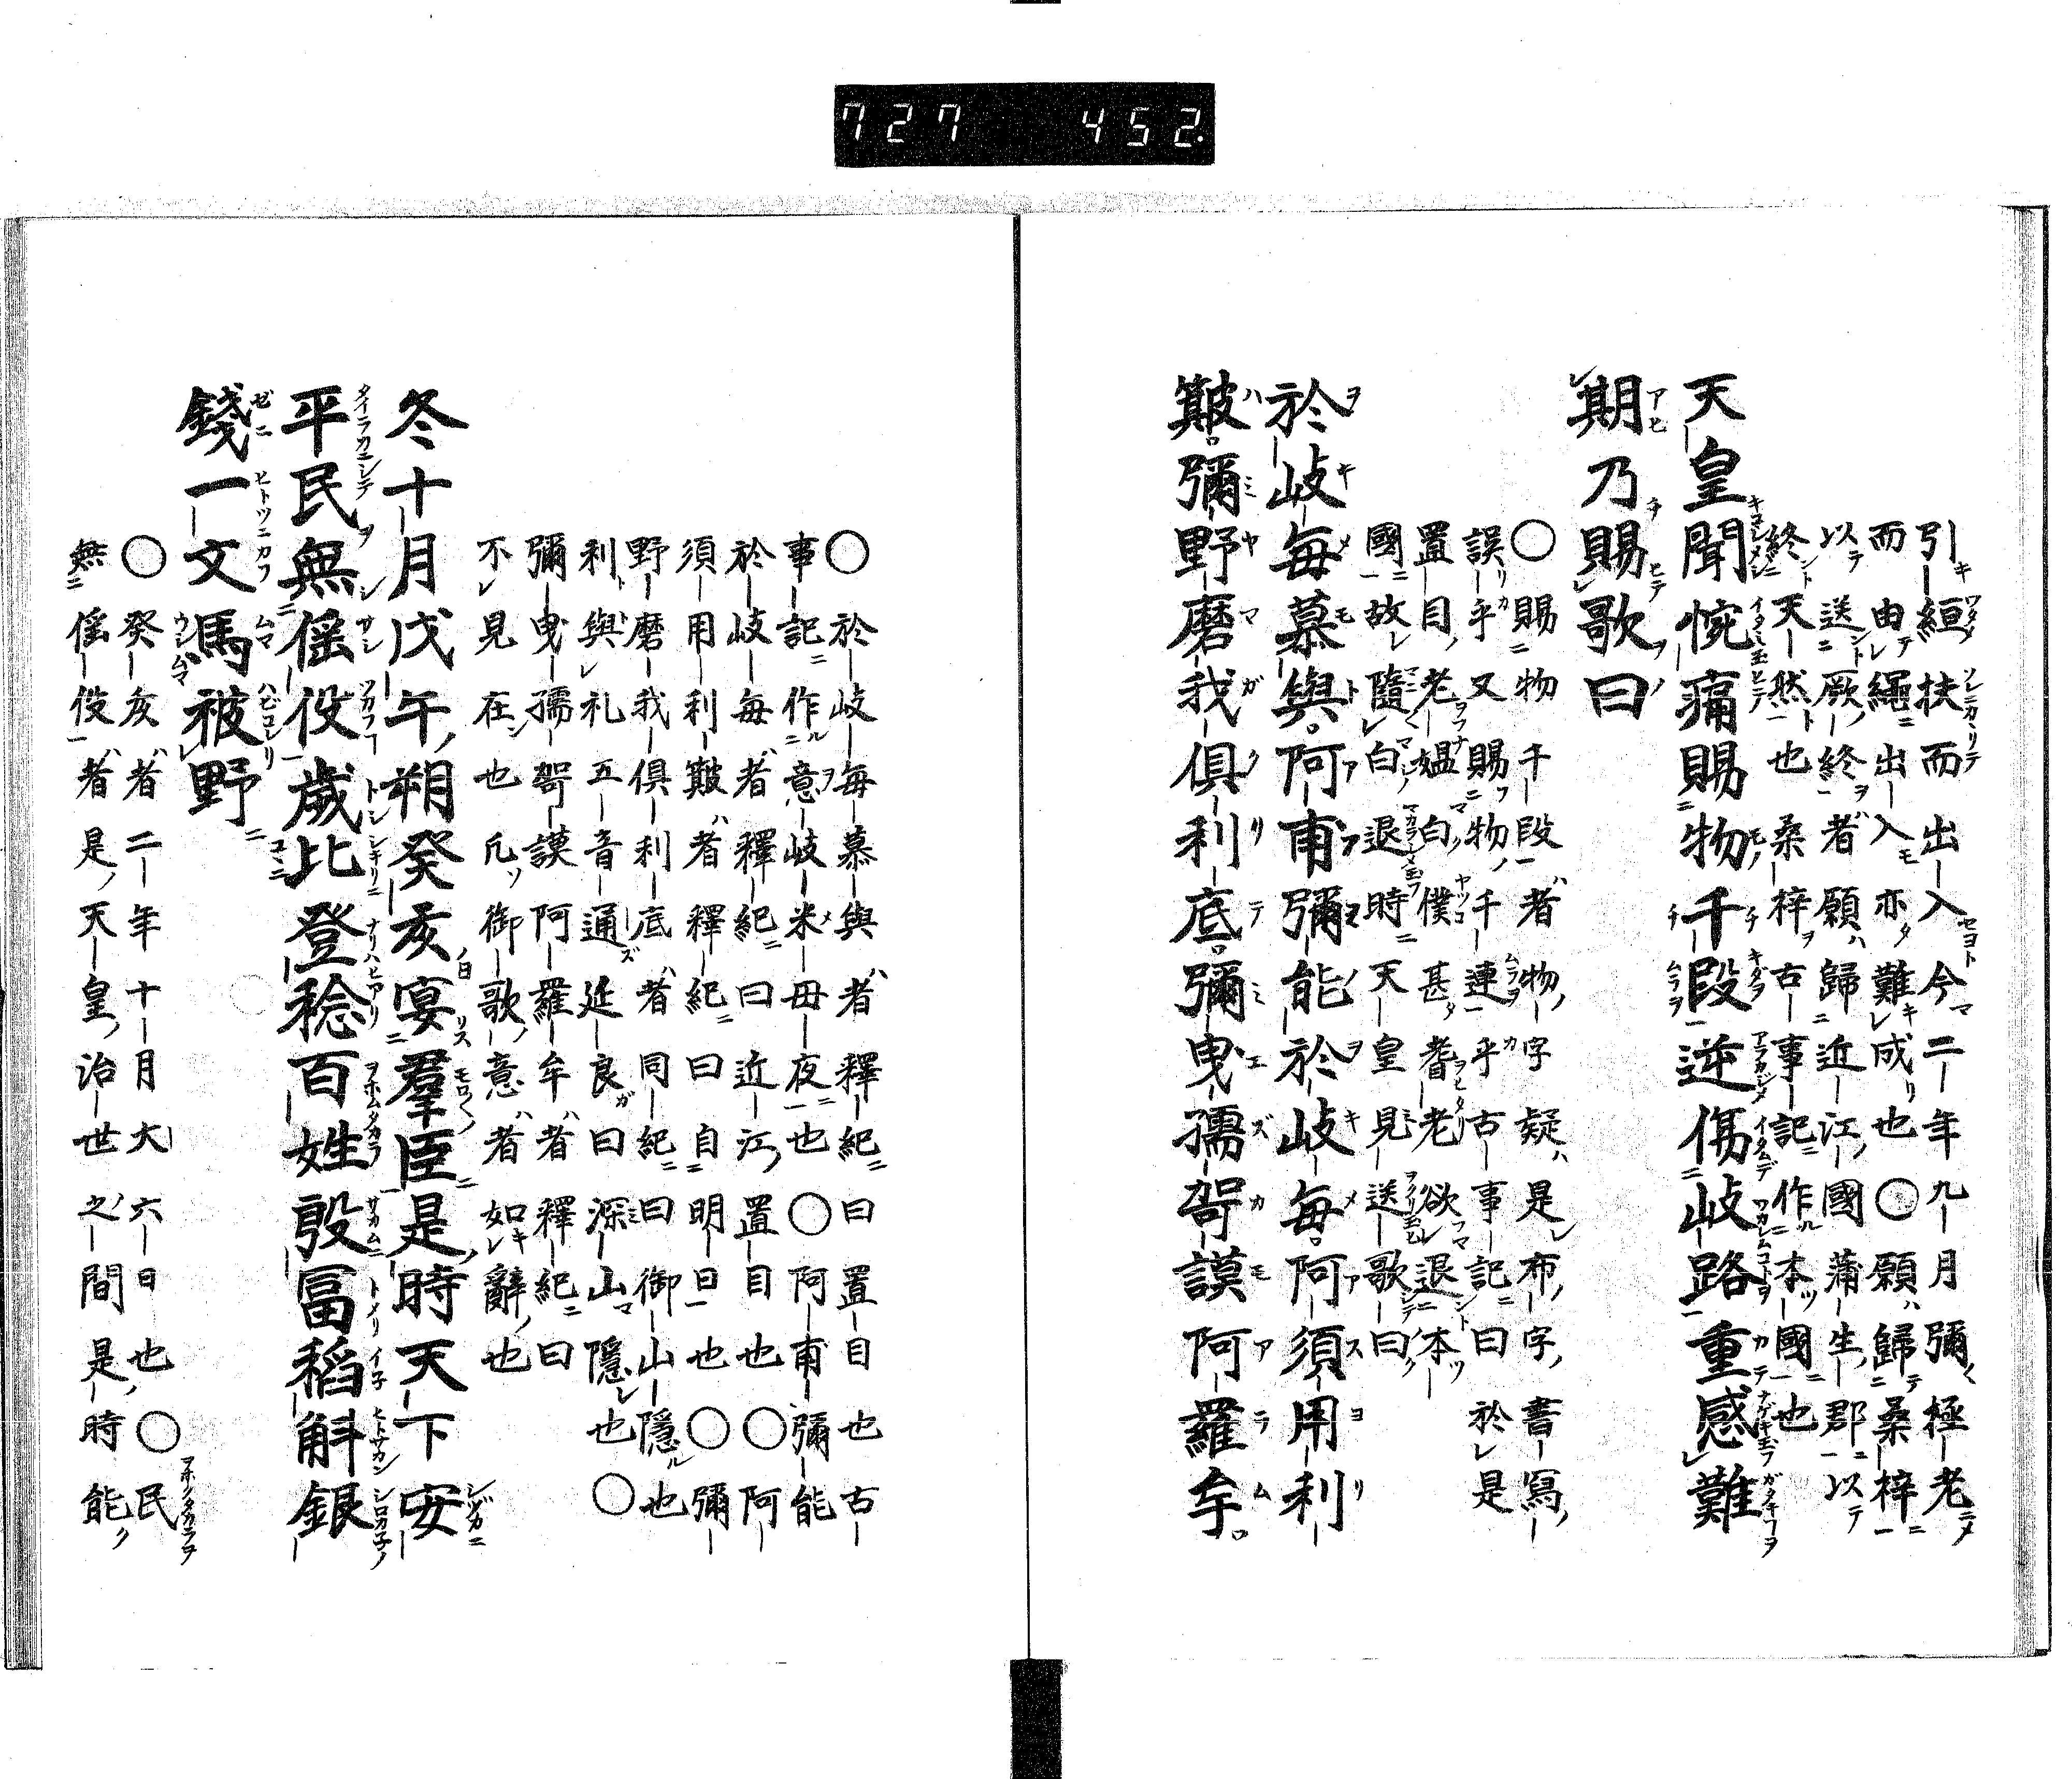 727 452
引絙扶而出入今二年九月彌極老
而由繩出入亦難成也〇願歸桑梓
以送厥終者願歸近江國蒲生郡以
終天然也桑梓古事記作本國也
天皇聞惋痛賜物千段逆傷岐路重感難
期乃賜歌曰
〇賜物千段者物字疑是布字書寫
誤乎又賜物千連乎古事記曰於是
置目老媼白僕甚耆老欲退本
國故隨白退時天皇見送歌曰
於岐毎慕與阿甫彌能於岐毎阿須用利
簸彌野磨我俱利底彌曳孺哿謨阿羅牟
〇於岐毎慕與者釋紀曰置目也古
事記作意岐米母夜也〇阿甫彌能
於岐毎者釋紀曰近江置目也〇阿
須用利簸者釋紀曰自明日也〇彌
野磨我俱利底者同紀曰御山隱也
利與礼五音通延良曰深山隱也〇
彌曳孺哿謨阿羅牟者釋紀曰
不見在也凡御歌意者如辭也
冬十月戊午朔癸亥宴羣臣是時天下安
平民無傜役歲比登稔百姓殷冨稻斛銀
錢一文馬被野
〇癸亥者二年十月大六日也〇民
無傜役者是天皇治世之間是時能